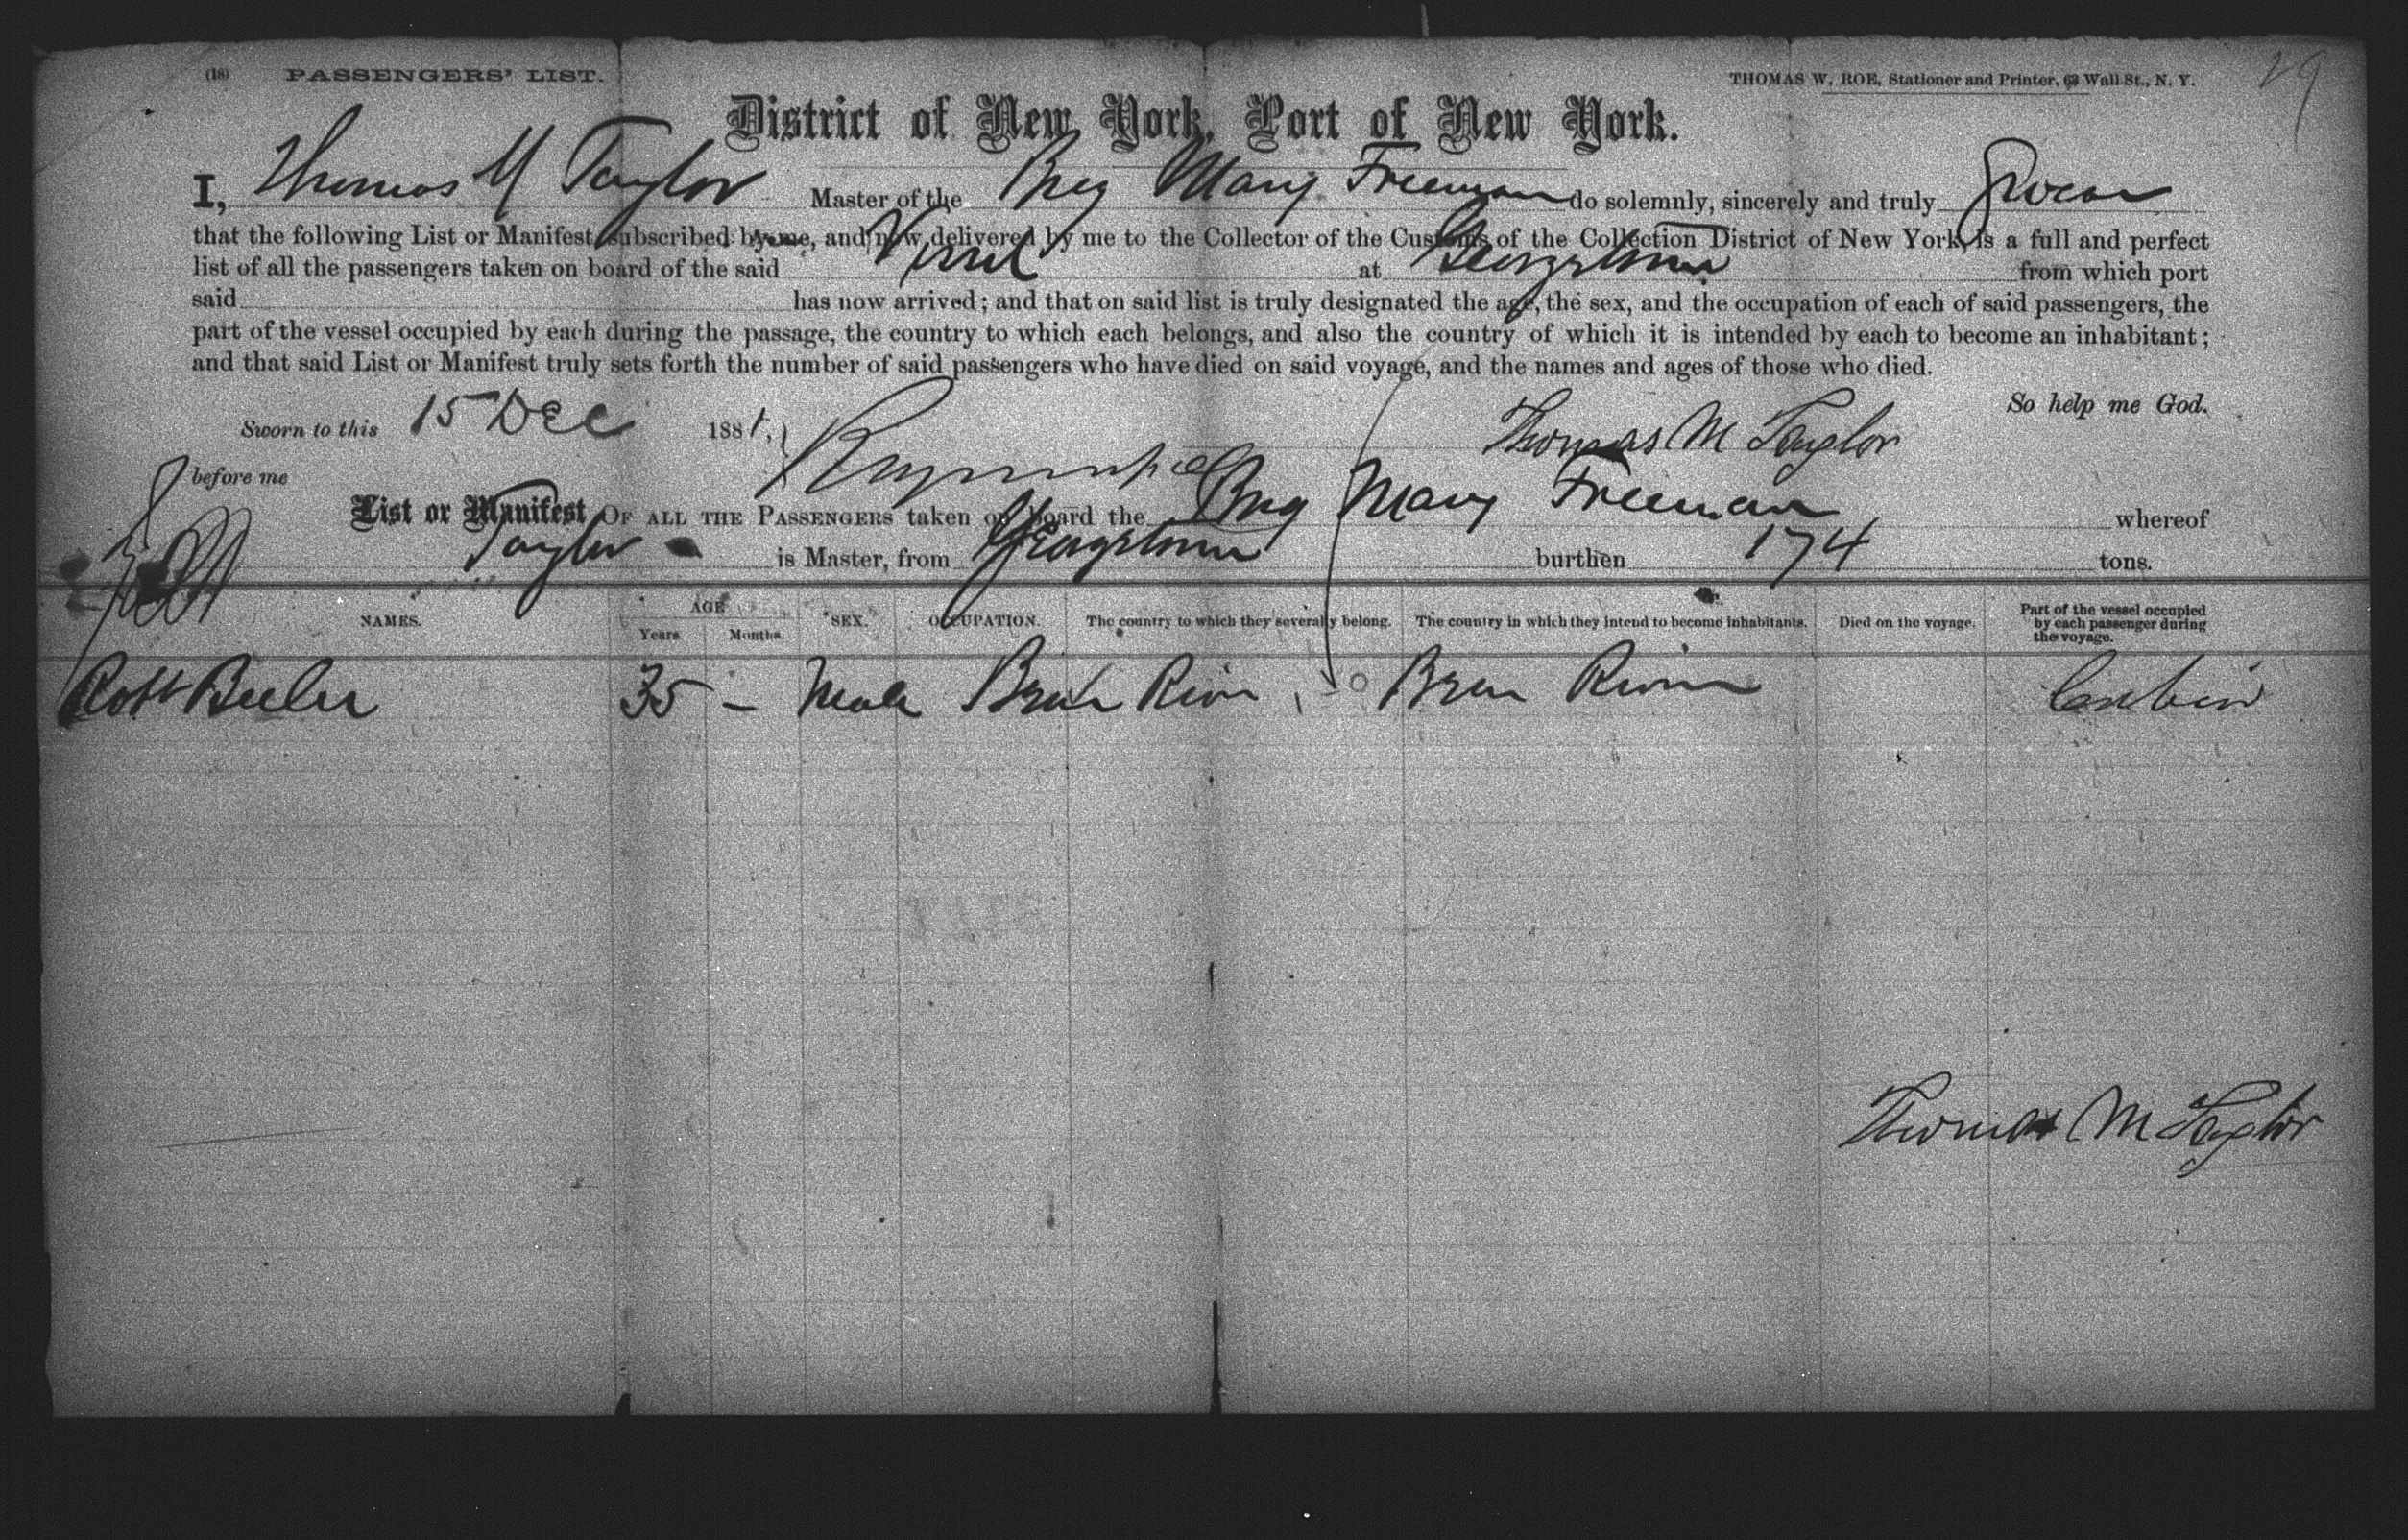 (18) PASSENGERS' LIST. THOMAS W. ROE, Stationer and Printer, 63 Wall St., N. Y. 29
District of New York, Port of New York.
I, Thomas M Taylor Master of the Brig Mary Freeman do solemnly, sincerely and truly Swear
that the following List or Manifest subscribed by me, and now delivered by me to the Collector of the Customs of the Collection District of New York, is a full and perfect
list of all the passengers taken on board of the said Vessel at Georgetown from which port
said has now arrived; and that on said list is truly designated the age, the sex, and the occupation of each of said passengers, the
part of the vessel occupied by each during the passage, the country to which each belongs, and also the country of which it is intended by each to become an inhabitant;
and that said List or Manifest truly sets forth the number of said passengers who have died on said voyage, and the names and ages of those who died.
So help me God.
Sworn to this 15 Dec 1881, Thomas M Taylor
before me
List or Manifest OF ALL THE PASSENGERS taken on board the Brig Mary Freeman whereof
Taylor is Master, from Georgetown burthen 174 tons.
NAMES. AGE Years Months. SEX. OCCUPATION. The country to which they severally belong. The country in which they intend to become inhabitants. Died on the voyage. Part of the vessel occupied by each passenger during the voyage.
Robt 35 – Male Cabin
Thomas M Taylor